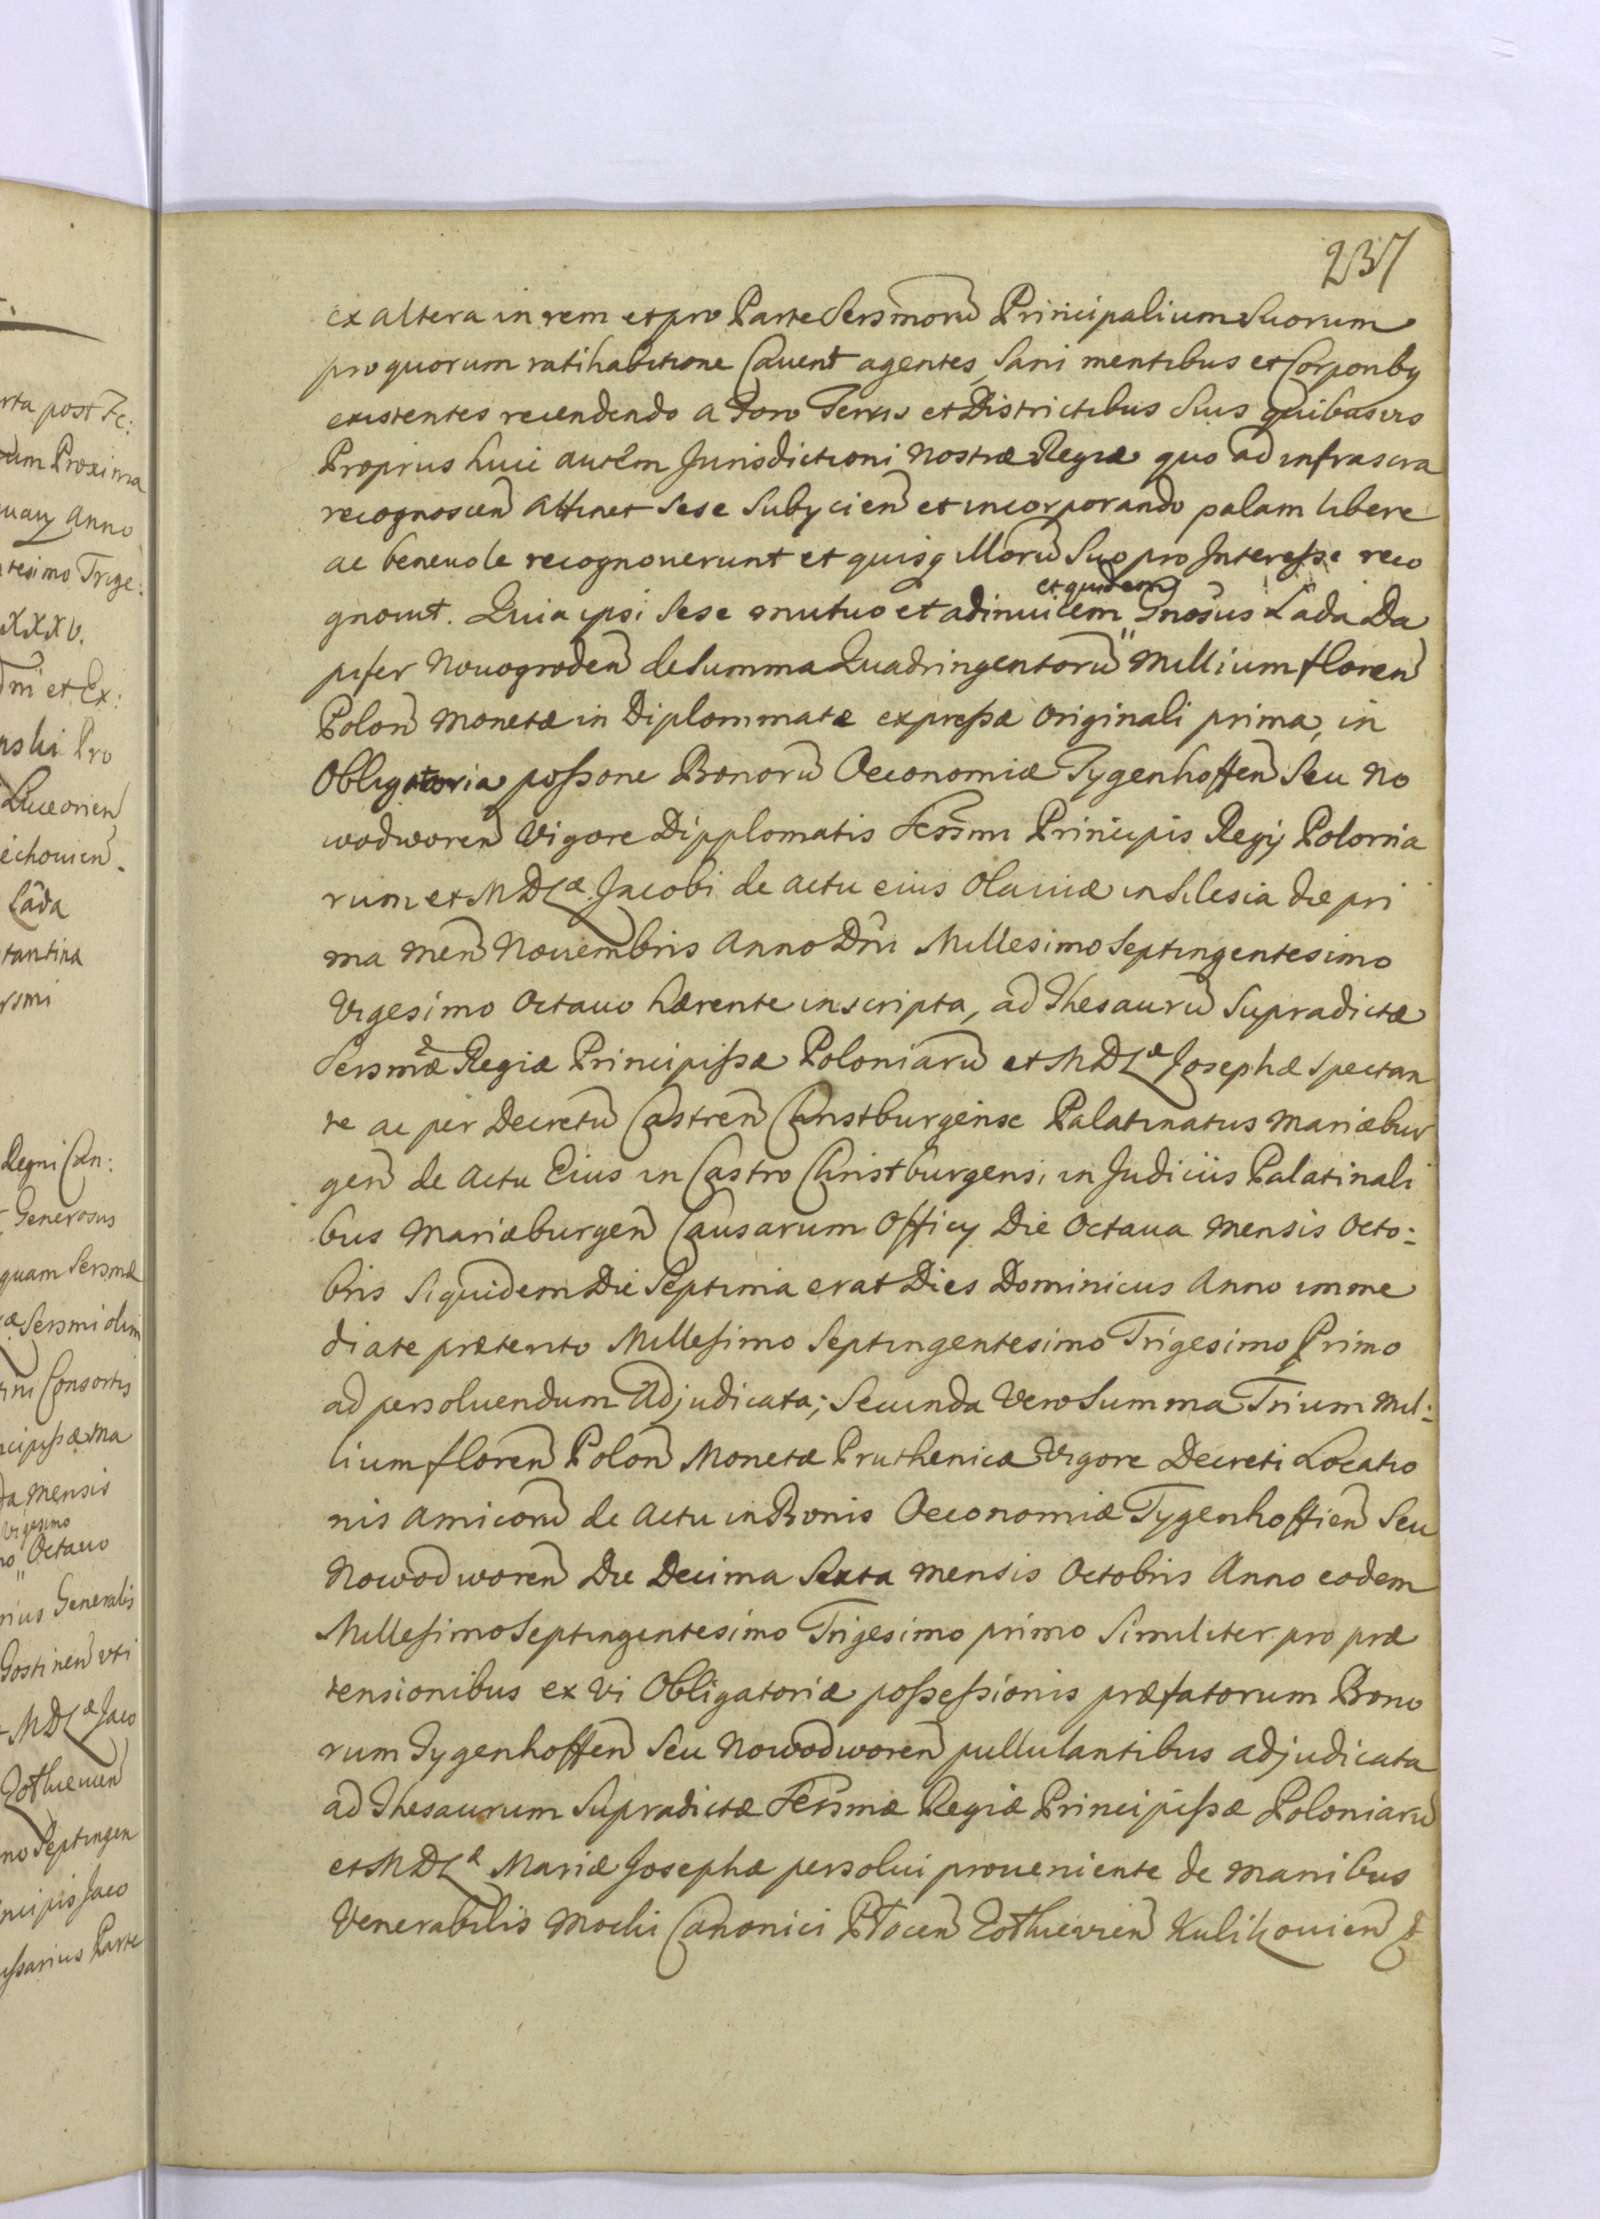 237
ex altera in rem et pro Parte Sersmorū Principalium Suorum
pro quorum ratihabitione Cauent agentes, Sani mentibus et Corporibg
existentes recendendo a Foro Terris et Districtibus Suis quibusvis
Proprius huic autem Jurisdictioni Nostræ Regiæ quo ad infrascra
recognoscen attinet sese Subycien et incorporando palam libere
ac beneuole recognouerunt et quisq illorū Suo pro Interesse reco
gnouit. Quia ipsi sese mutuo et adinuicem et quidem Gnosus Łada Da
pifer Nouogroden de Summa Quadringentorū Millium floren
Polon Monetæ in Diplommatæ expressæ Originali prima, in
Obligatoria possone Bonorū Oeconomiæ Tygenhoffen Seu No
wodworen Vigore Dipplomatis Serssmi Principis Regij Polonia
rum et MDLæ Jacobi de actu eius Olauiæ in Silesia die pri
ma men Nouembris Anno Dni Millesimo Septingentesimo
Vigesimo Octauo hærente inscripta, ad Thesaurū Supradictæ
Sersmæ Regiæ Principissæ Poloniarū et MDLæ Josephæ Spectan
te ac per Decretū Castren Christburgense Palatinatus Mariæbur
gen de Actu Eius in Castro Christburgensi in Judiciis Palatinali
bus Mariæburgen Causarum Officy Die Octaua Mensis Octo:
bris Siquidem Die Septima erat Dies Dominicus Anno imme
diate præterito Millesimo Septingentesimo Trigesimo Primo
ad persoluendum Adjudicata; Secunda Vero Summa Trium Mil:
lium floren Polon Monetæ Pruthenicæ Vigore Decreti Locatio
nis Amicorū de Actu in Bonis Oeconomiæ Tygenhoffien Seu
Nowodworen Die Decima Sexta Mensis Octobris Anno eodem
Millesimo Septingentesimo Trigesimo primo Similiter pro præ
tensionibus ex vi Obligatoriæ possessionis præfatorum Bono
rum Tygenhoffen Seu Nowodworen pullulantibus adjudicata
ad Thesaurum Supradictæ Serssmæ Regiæ Principissæ Poloniarū
et MDLæ Mariæ Josephæ persolui proueniente de manibus
Venerabilis Mocki Canonici Płocen Zołkievien Kulikouien
rta post Fe:
um Proxima
uary Anno
tesimo Trige:
XXXV.
et Ex:
nski Pro
Luceorien
Łada
tantina
rsmi
Regni Can:
Generosus
quam Sersmæ
Sersmi olim
Consortis
cipissæ Ma
da Mensis
Vigesimo
Octauo
rius Generalis
Gostinen vti
MDLæ Jaco
Zołkieuien
no Septingen
ncipis Jaco
issarius Parte